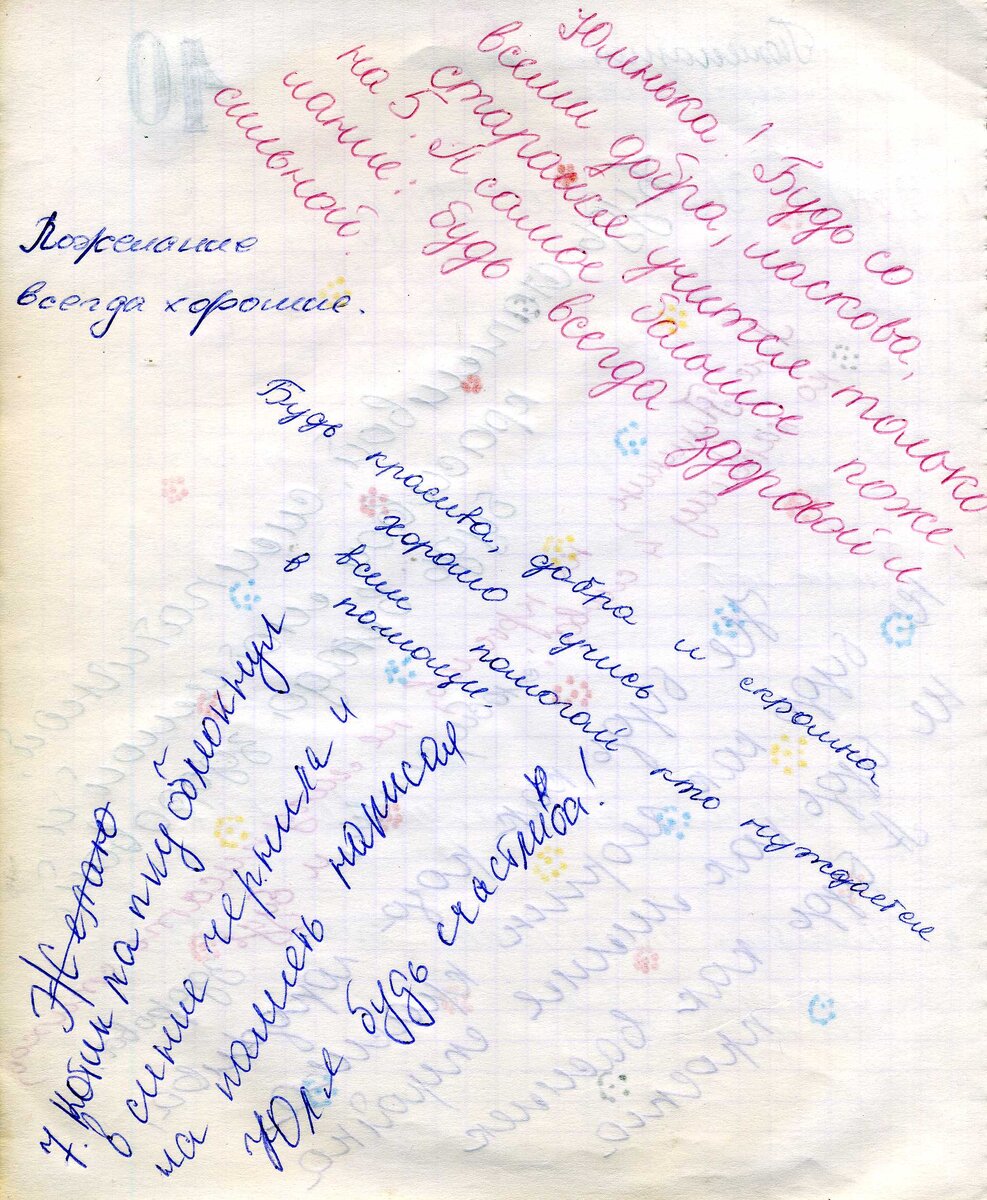 Юленька! Будь со
всеми добра, ласкова,
старайся учится только
на 5. И самое большое поже-
лание: будь всегда здоровой и
сильной.
Пожелание
всегда хорошие.
Будь красива, добра и скромна
хорошо учись
всем помогай кто нуждается
в помощи.
Желаю
7. Котик лапку обмокнул
в синие чернила и
на память написал
Юля будь счастлива!